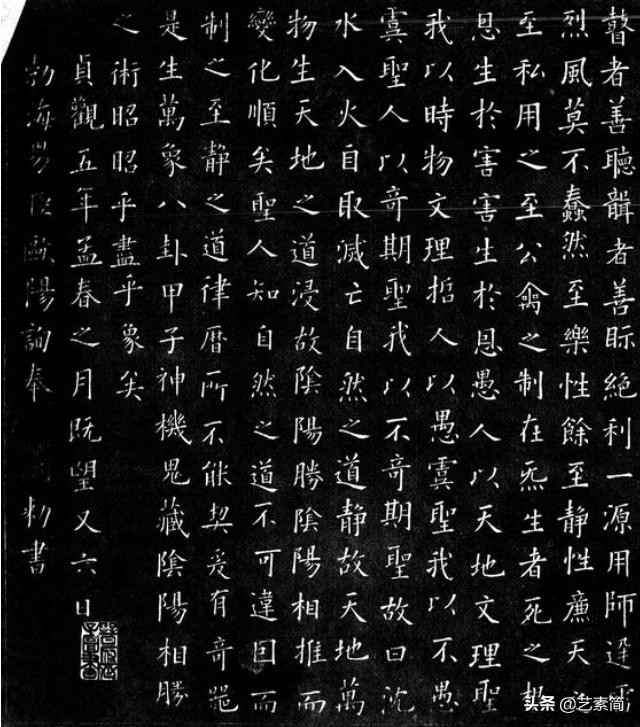 瞽者善聽聾者善眎絕利一源用師
烈風莫不蠢然至樂性餘至靜性廉天之
至私用之至公禽之制在炁生者死之根
恩生於害害生於恩愚人以天地文理聖
我以時物文理哲人以愚虞聖我以不愚
虞聖人以奇期聖我以不奇期聖故曰沈
水入火自取滅亡自然之道靜故天地萬
物生天地之道浸故陰陽勝陰陽相推而
變化順矣聖人知自然之道不可違因而
制之至靜之道律曆所不能契爰有奇器
是生萬象八卦甲子神機鬼藏陰陽相勝
之術昭昭乎盡乎象矣
貞觀五年孟春之月既望又六日
勃海臣歐陽詢奉勅書
头条 @艺素简